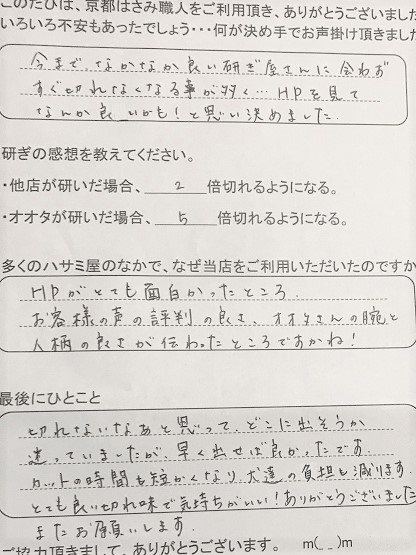 このたびは、京都はさみ職人をご利用頂き、ありがとうございました
いろいろ不安もあったでしょう・・・何が決め手でお声掛け頂きました
今まで、なかなか良い研ぎ屋さんに会わず
すぐ切れなくなる事が多く…HPを見て
なんか良いかも!と思い決めました.
研ぎの感想を教えてください。
・他店が研いだ場合、2倍切れるようになる。
・オオタが研いだ場合、5倍切れるようになる。
多くのハサミ屋のなかで、なぜ当店をご利用いただいたのですか
HPがとても面白かったところ.
お客様の声の評判の良さ、オオタさんの腕と
人柄の良さが伝わったところですかね!
最後にひとこと
切れないなあと思って、どこに出そうか
迷っていましたが、早く出せば良かったです.
カットの時間も短かくなり、犬達の負担も減ります.
とても良い切れ味で気持ちがいい!ありがとうございました
またお願いします.
ご協力頂きまして、ありがとうございます。 m(__)m